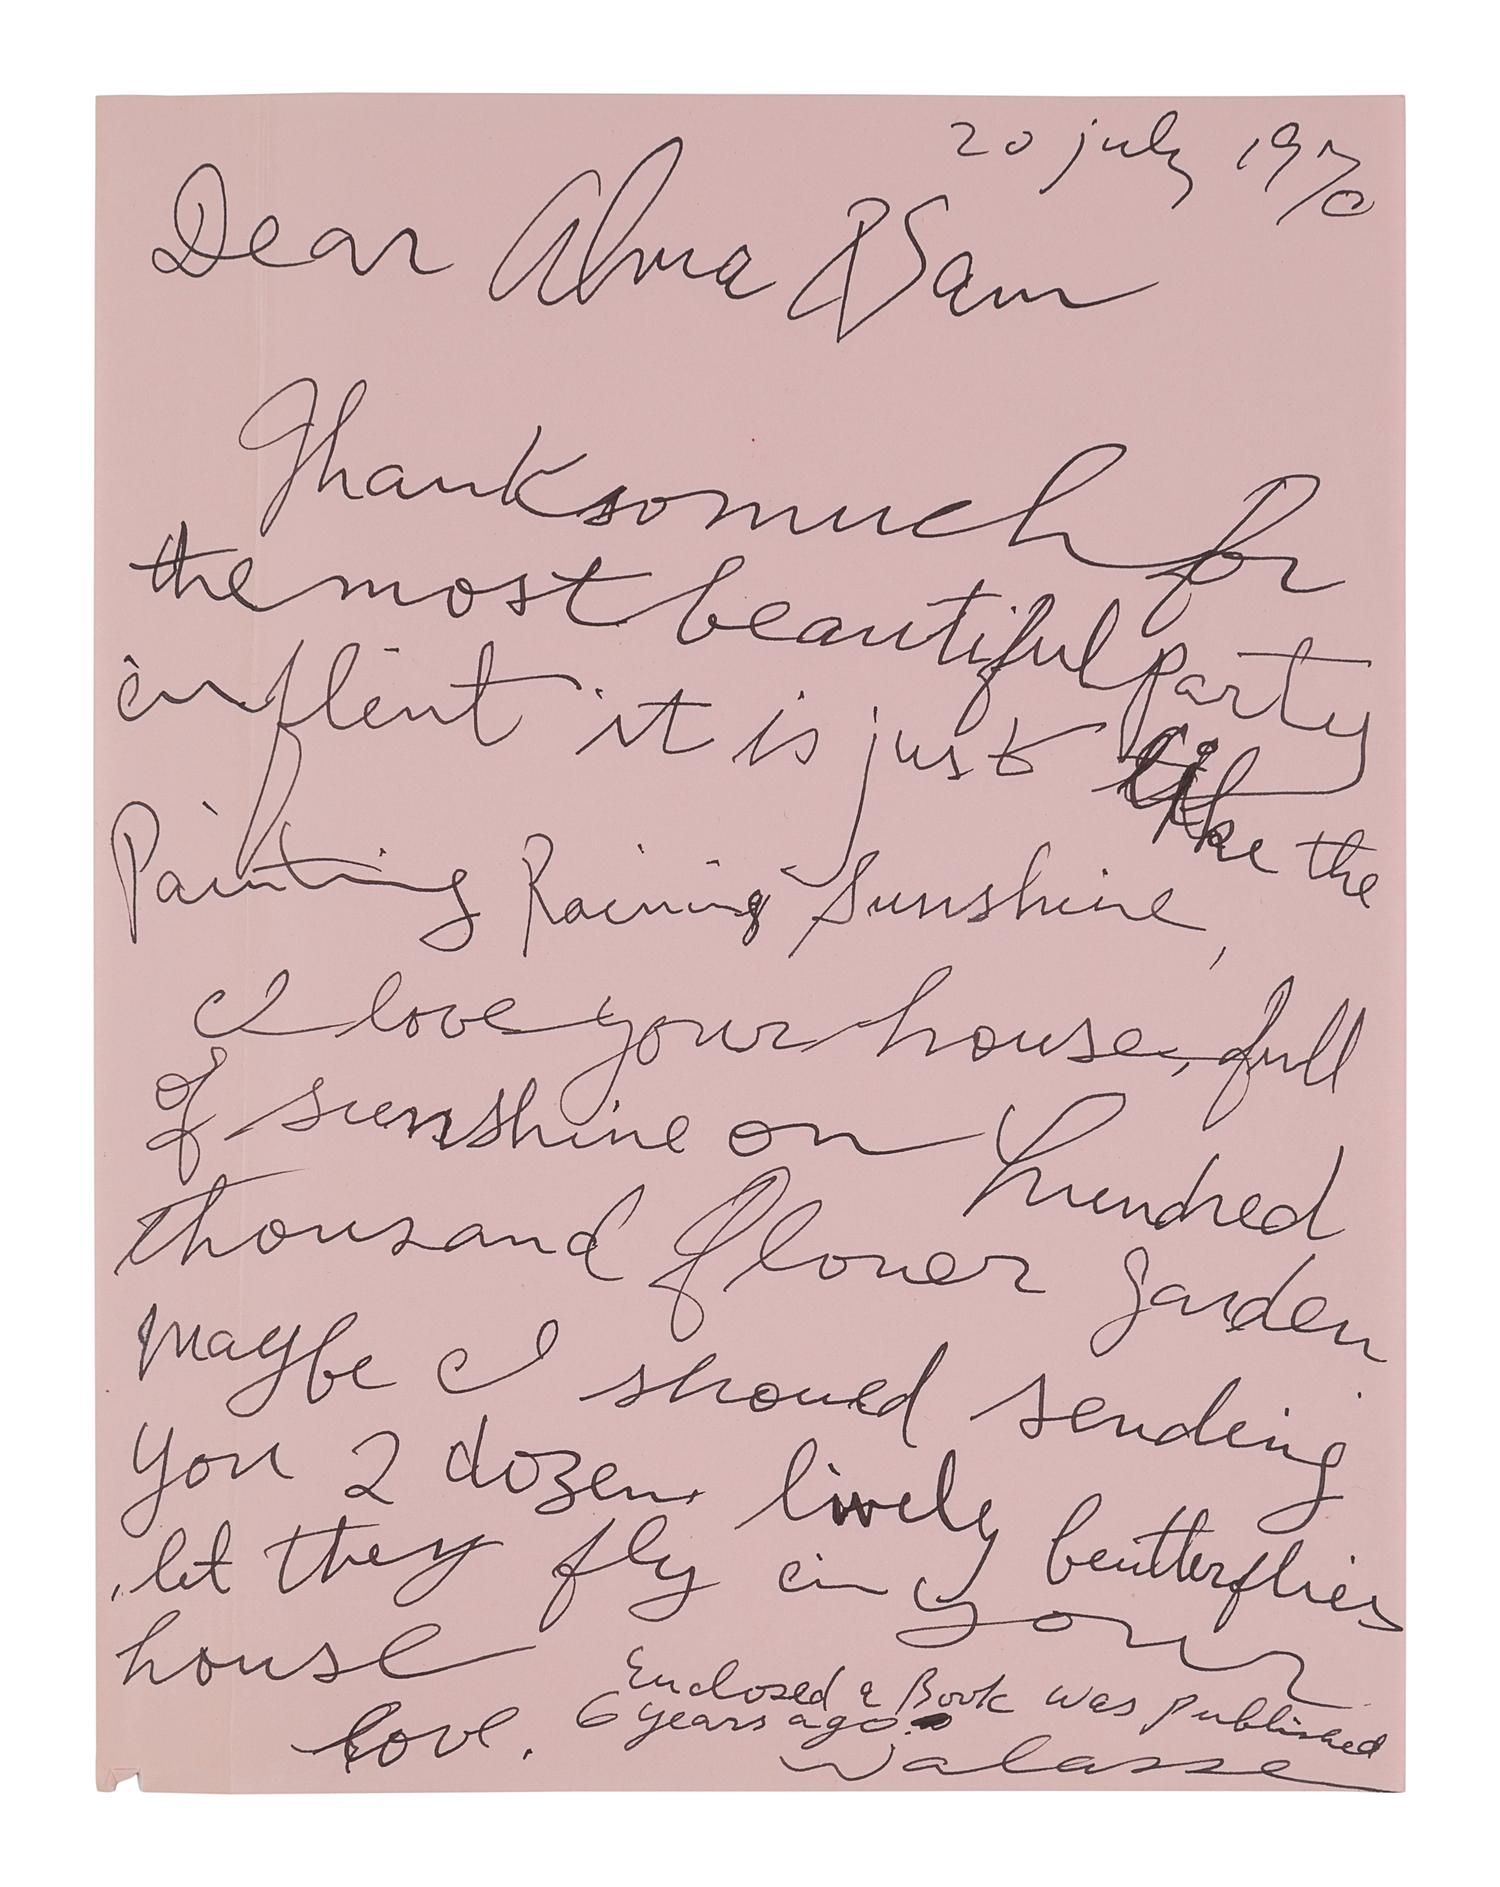 20 july 1970
Dear Alma & Sam
Thank so much for
the most beautiful party
in flint it is just like the
Painting Raining Sunshine,
I love your house, full
of sunshine on hundred
thousand flower garden
maybe I should sending
you 2 dozen lively beutterflies
, let they fly in your
house
Enclosed a Book was published
6 years ago.
love.
Walasse